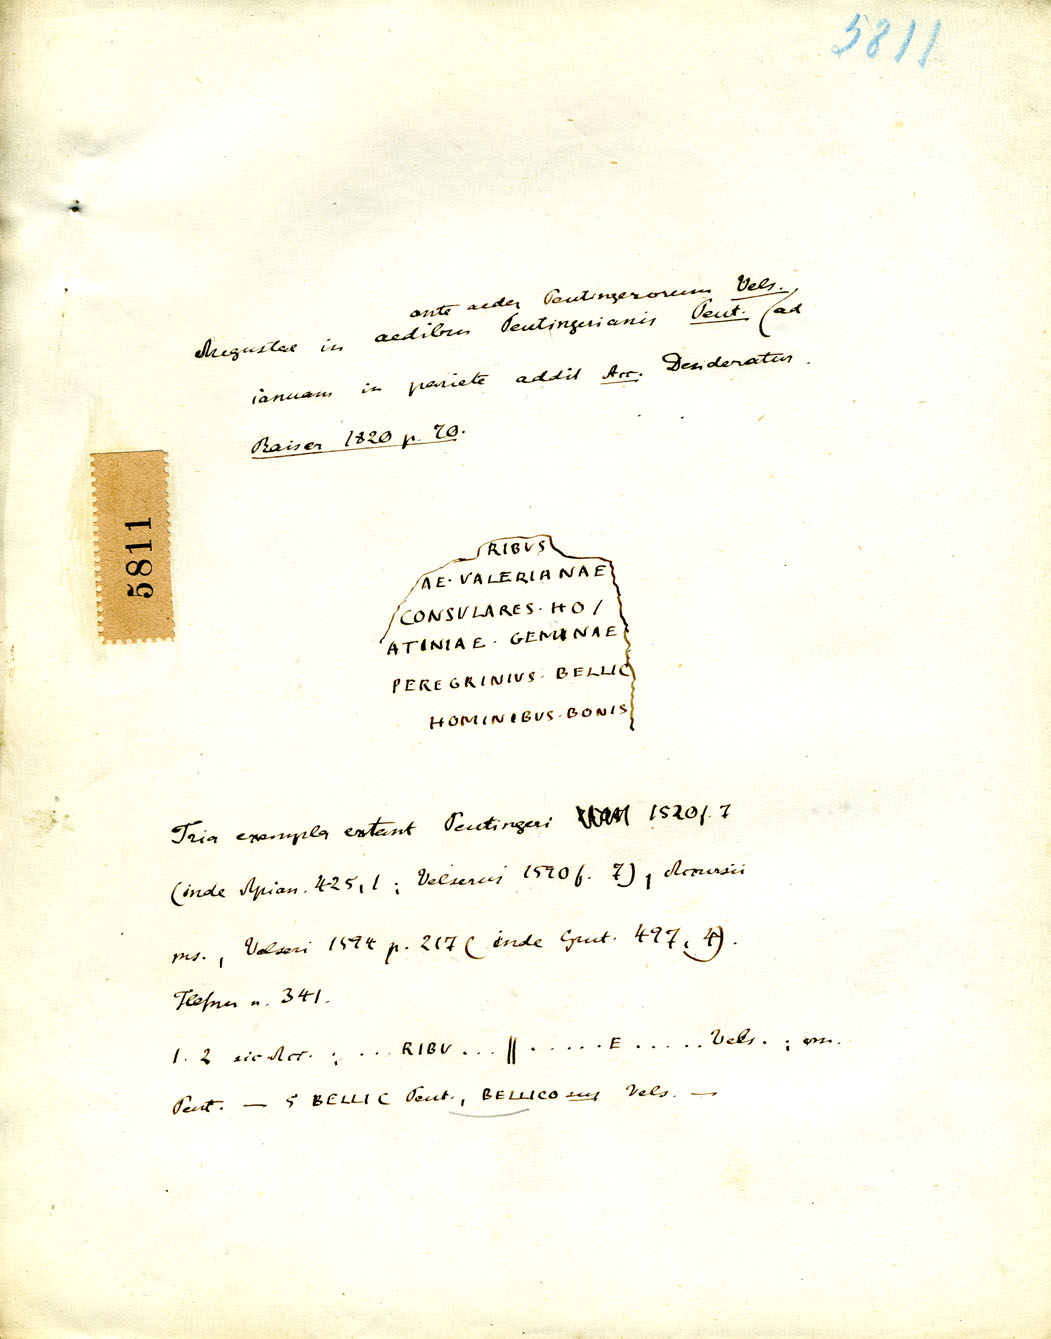 5811
ante aedes Peutingerorum Vels.
Augustae in aedibus Peutingerianis Peut. (ad
ianuam in pariete addit Acc. Desideratur.
Raiser 1820 p. 70.
5811
RIBVS
AE · VALERIANAE
CONSVLARES · HO/
ATINIAE · GEMINAE
PEREGRINIVS · BELLIC
HOMINIBUS · BONIS
Tria exempla extant Peutingeri 1520 f. 7
(inde Apian. 425, 1 ; Velserus 1590 f. 7), Accursii
ms., Velseri 1594 p. 217 (inde Grut. 497, 4).
Hefner n. 341.
1. 2 sic Acc. ; ... RIBV ... || ..... E ..... Vels. ; om.
Peut. — 5 BELLIC Peut., BELLICO sus Vels. —